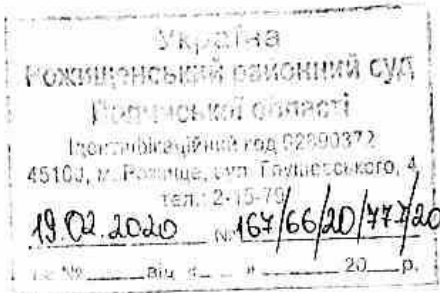 Україна
Рожищенський районний суд
Волинської області
Ідентифікаційний код 02890372
45100, м. Рожище, вул. Грушевського, 4
тел.: 2-15-79
19.02.2020 № 167/66/20/777/20
на № від " " 20 р.